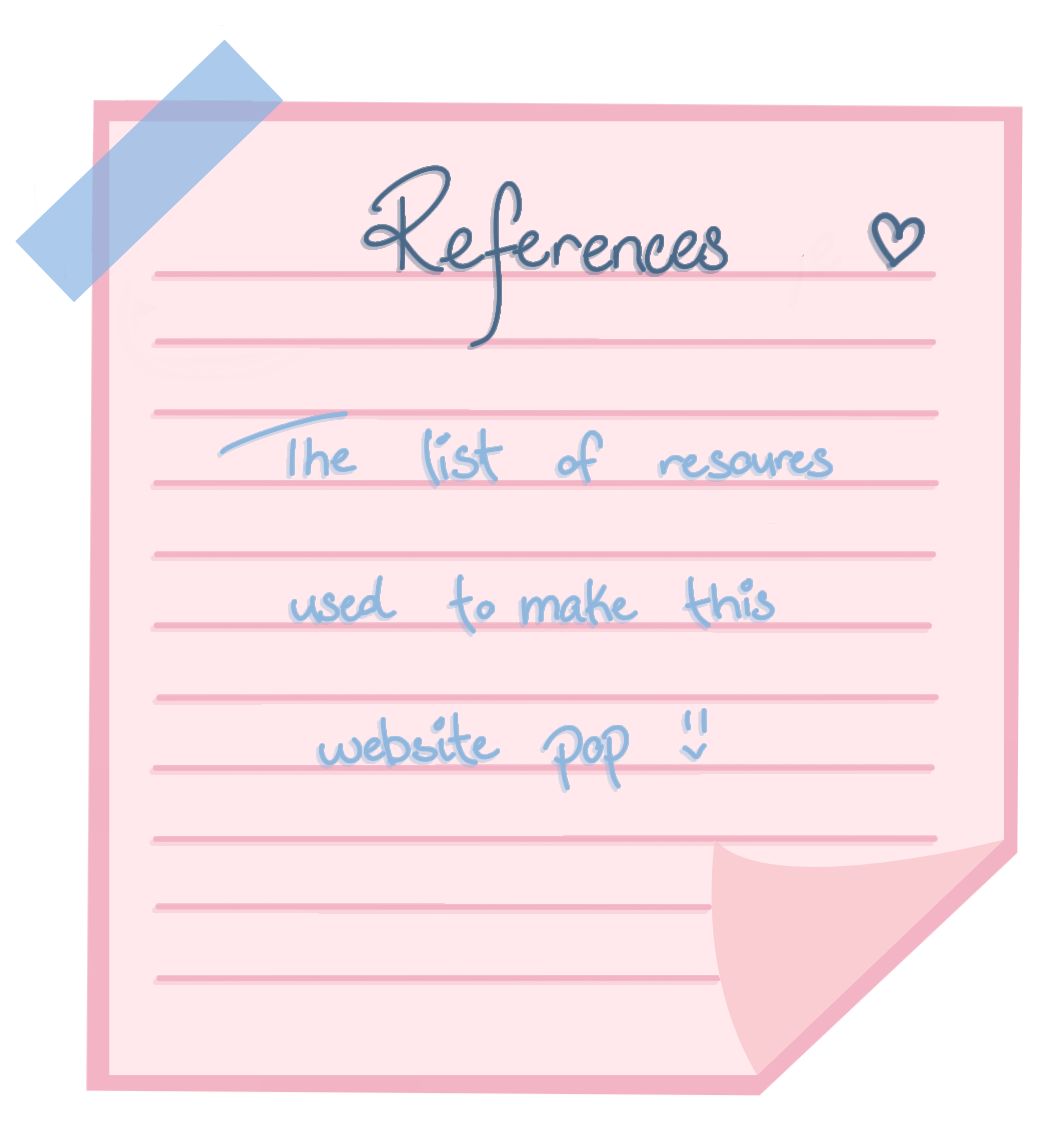 References ♡
The list of resoures
used to make this
website pop !!